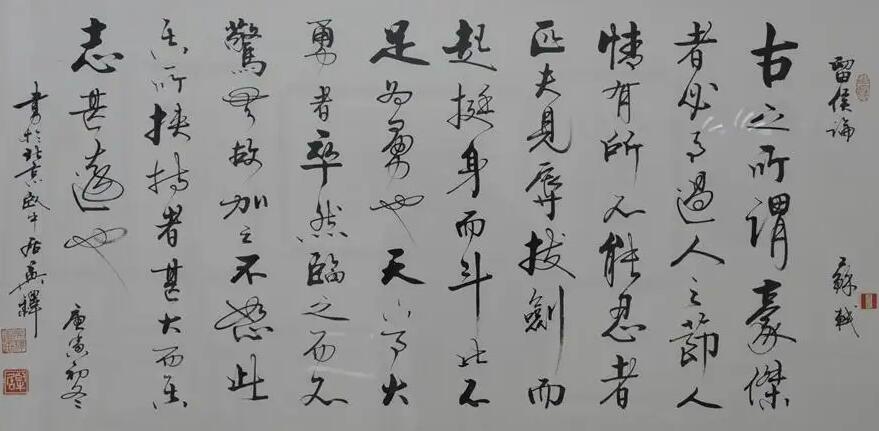 留侯論 蘇軾
古之所謂豪傑
者必有過人之節人
情有所不能忍者
匹夫見辱拔劍而
起挺身而斗此不
足為勇也天下有大
勇者卒然臨之而不
驚無故加之不怒此
其所挾持者甚大而其
志甚遠也
庚寅初冬
書於北京